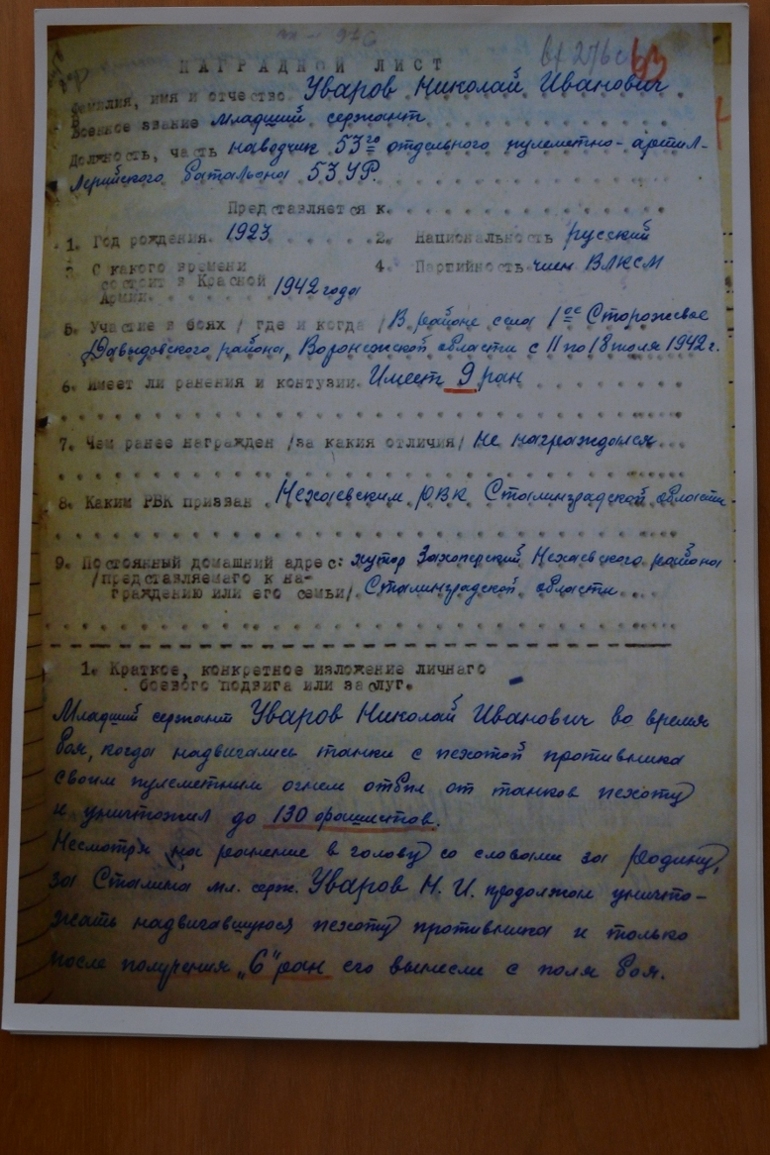 НАГРАДНОЙ ЛИСТ
Фамилия, имя и отчество Уваров Николай Иванович
Военное звание Младший сержант
Должность, часть наводчик 53го отдельного пулеметно-артил-
лерийского батальона 53 УР.
Представляется к
1. Год рождения. 1923 2. Национальность русский
3 С какого времени 4. Партийность член ВЛКСМ
состоит в Красной
Армии. 1942 года
5. Участие в боях / где и когда / В районе села 1ое Сторожевое
Давыдовского района, Воронежской области с 11 по 18 июля 1942 г.
6. Имеет ли ранения и контузии. Имеет 9 ран
7. Чем ранее награжден /за какия отличия/ не награждался
8. Каким РВК призван Нехаевским РВК Сталинградской области
9. Постоянный домашний адрес: хутор Захоперский Нехаевского района
/представляемаго к на-
граждению или его семьи/ Сталинградской области
1. Краткое, конкретное изложение личнаго
боевого подвига или заслуг.
Младший сержант Уваров Николай Иванович во время
боя, когда надвигались танки с пехотой противника
своим пулеметным огнем отбил от танков пехоту
и уничтожил до 130 фашистов.
Несмотря на ранение в голову со словами за родину,
за Сталина мл. серж. Уваров Н. И. продолжал уничто-
жать надвигавшуюся пехоту противника и только
после получения „6" ран его вынесли с поля боя.